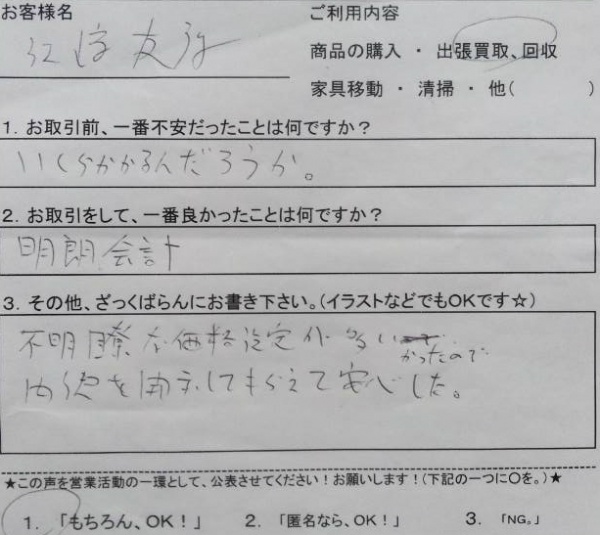 お客様名
ご利用内容
友
商品の購入 ・ 出張買取、回収
家具移動 ・ 清掃 ・ 他( )
1. お取引前、一番不安だったことは何ですか?
いくらかかるんだろうか。
2. お取引をして、一番良かったことは何ですか?
明朗会計
3. その他、ざっくばらんにお書き下さい。(イラストなどでもOKです☆)
不明瞭な価格設定が多い
かったので
内訳を開示してもらえて安心した。
★この声を営業活動の一環として、公表させてください!お願いします!(下記の一つに○を。)★
1. 「もちろん、OK!」 2. 「匿名なら、OK!」 3. 「NG。」